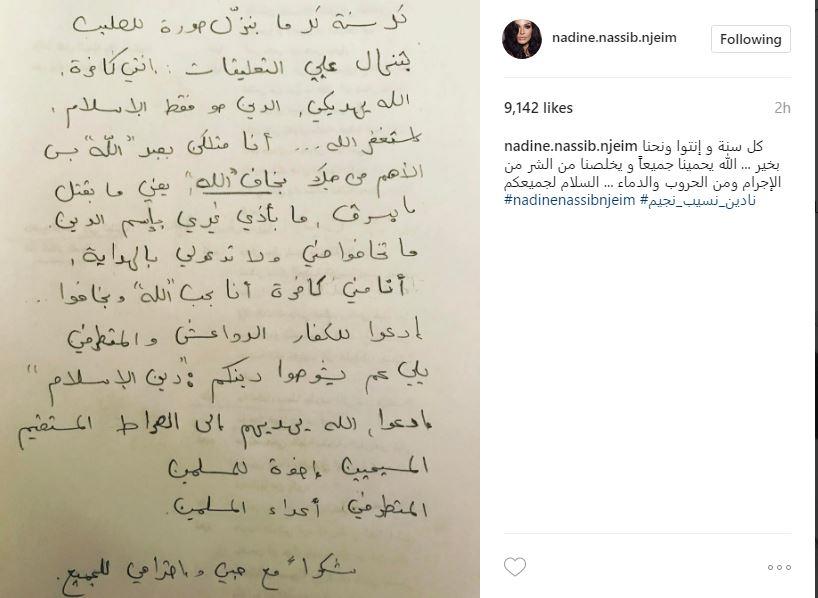 كل سنة كل ما بنزّل صورة للصليب
بتنهال عليي التعليقات : إنتي كافرة،
الله يهديكي، الدين هو فقط الإسلام.
استغفر الله ... أنا متلك بعبد "الله" بس
الأهم من هيك بخاف "الله"، يعني ما بقتل
ما بسرق، ما بأذي غيري بإسم الدين.
ما تخافوا مني ولا تدعولي بالهداية،
أنا مني كافرة أنا بحب "الله" وبخافوا ..
إدعوا للكفار الدواعش والمتطرفين
يلي عم يشوهوا دينكم : "دين الإسلام"
إدعوا، الله يهديهم إلى الصراط المستقيم
المسيحيين إخوة للمسلمين
المتطرفين أعداء المسلمين.
شكراً مع حبي و إحترامي للجميع.
nadine.nassib.njeim
Following
9,142 likes
2h
nadine.nassib.njeim كل سنة و إنتوا ونحنا
بخير ... الله يحمينا جميعاً و يخلصنا من الشر من
الإجرام ومن الحروب والدماء ... السلام لجميعكم
#nadinenassibnjeim #نادين_نسيب_نجيم